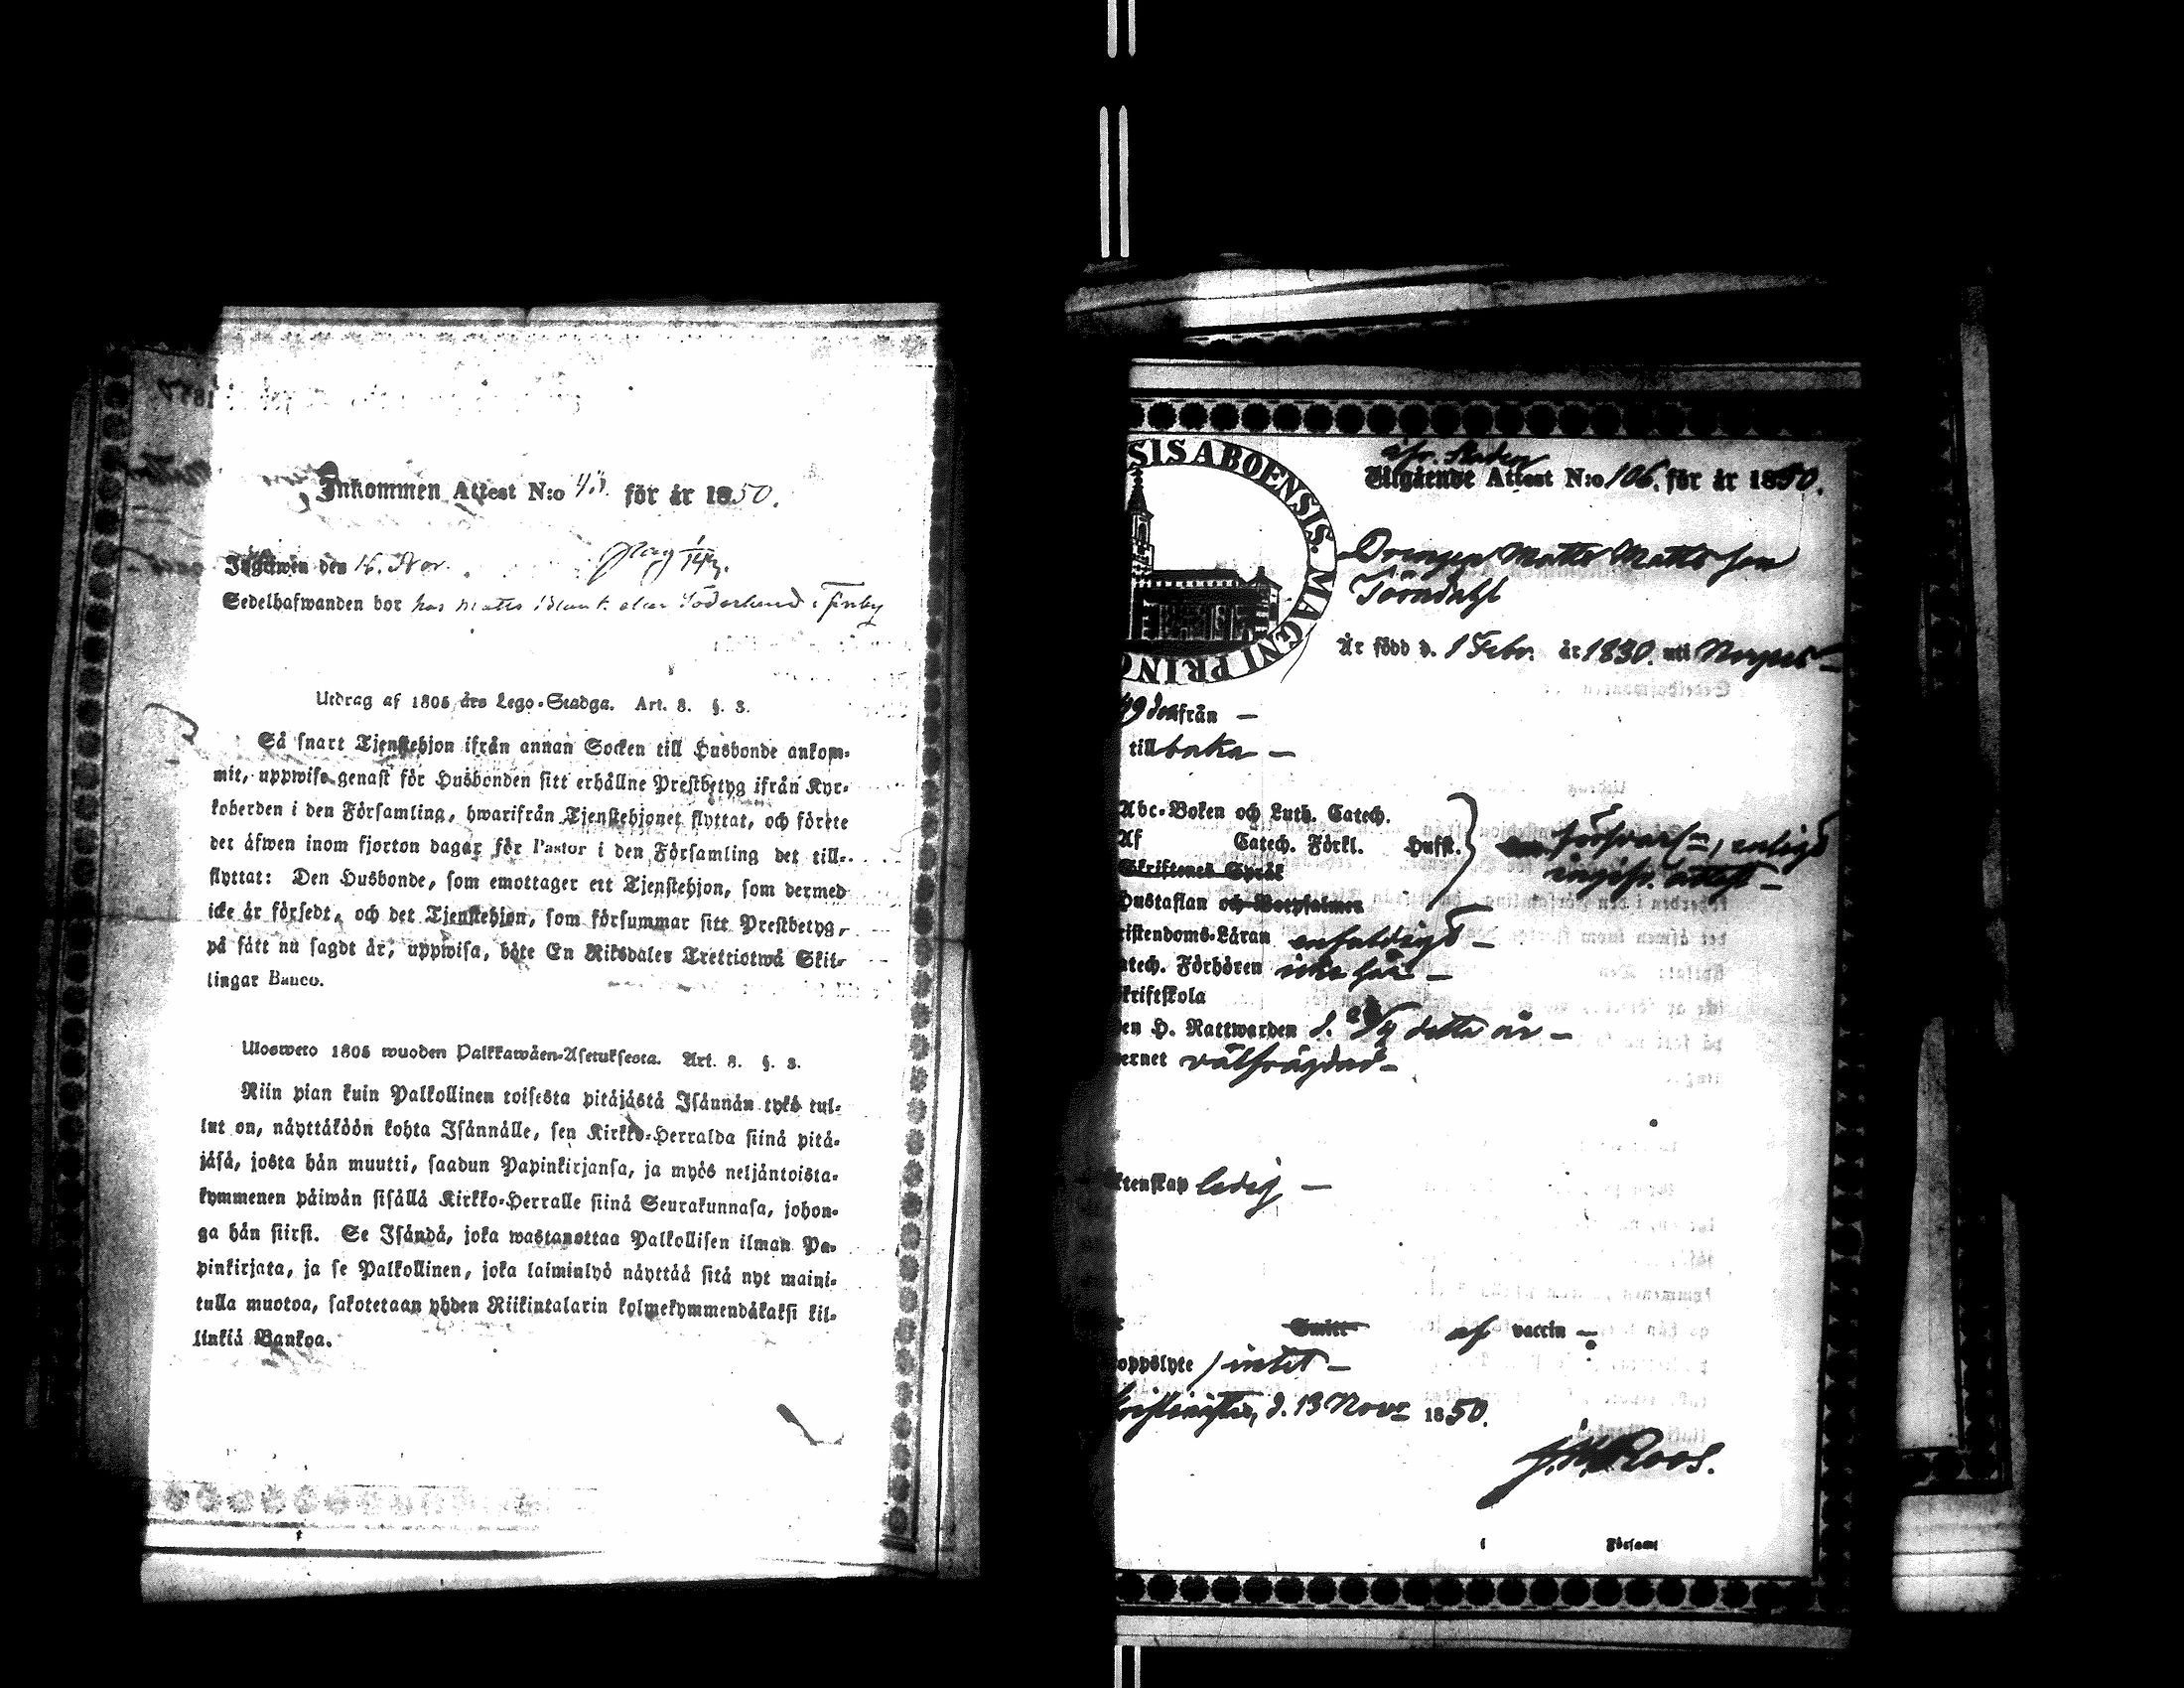 Inkommen Attest N:o 43. för år 1850.
Ingifwen den 16. Nov. pag 1/142.
Sedelhafwanden bor hos Matts Blank eller Söderlund i Finby
Utdrag af 1805 års Lego-Stadga. Art. 8. §. 3.
Så snart Tjenstehjon ifrån annan Socken till Husbonde ankom-
mit, uppwise genast för Husbonden sitt erhållne Prestbetyg ifrån Kyr-
koherden i den Församling, hwarifrån Tjenstehjonet flyttat, och förete
det äfwen inom fjorton dagar för Pastor i den Församling det till-
flyttat: Den Husbonde, som emottager ett Tjenstehjon, som dermed
icke är försedt, och det Tjenstehjon, som försummar sitt Prestbetyg,
på sätt nu sagdt är, uppwisa, böte En Riksdaler Trettiotwå Skil-
lingar Banco.
Ulosweto 1805 wuoden Palkkawäen-Asetuksesta. Art. 8. §. 3.
Niin pian kuin Palkollinen toisesta pitäjästä Isännän tykö tul-
lut on, näyttäköön kohta Isännälle, sen Kirkko-Herralda siinä pitä-
jäsä, josta hän muutti, saadun Papinkirjansa, ja myös neljäntoista-
kymmenen päiwän sisällä Kirkko-Herralle siinä Seurakunnasa, johon-
ga hän siirsi. Se Isändä, joka wastanottaa Palkollisen ilman Pa-
pinkirjata, ja se Palkollinen, joka laiminlyö näyttää sitä nyt maini-
tulla muotoa, sakotetaan yhden Riikintalarin kolmekymmendäkaksi kil-
linkiä Bankoa.
SIS ABOENSIS. MAGNI PRINC
ifr. Staden
Utgående Attest N:o 106. för år 1850.
Drengen Matts Matts son
Törndahl
Är född d. 1 Febr. år 1830. uti Nerpes –
49 den från –
till baka –
Abc-Boken och Luth. Catech.
Af Catech. Förkl. Hufst. försvarl., enligt
Skriftenes Språk ingifv. attest –
Hustaflan och Botpsalmen
ristendoms-Läran enfaldigt –
atech. Förhören icke här –
kriftskola
en H. Nattwarden d. /9 detta år –
ernet välfrägdad –
ktenskap ledig –
Smitt af vaccin –
oppslyte / intet –
d. 13 Novr 1850.
Roos.
i Församl